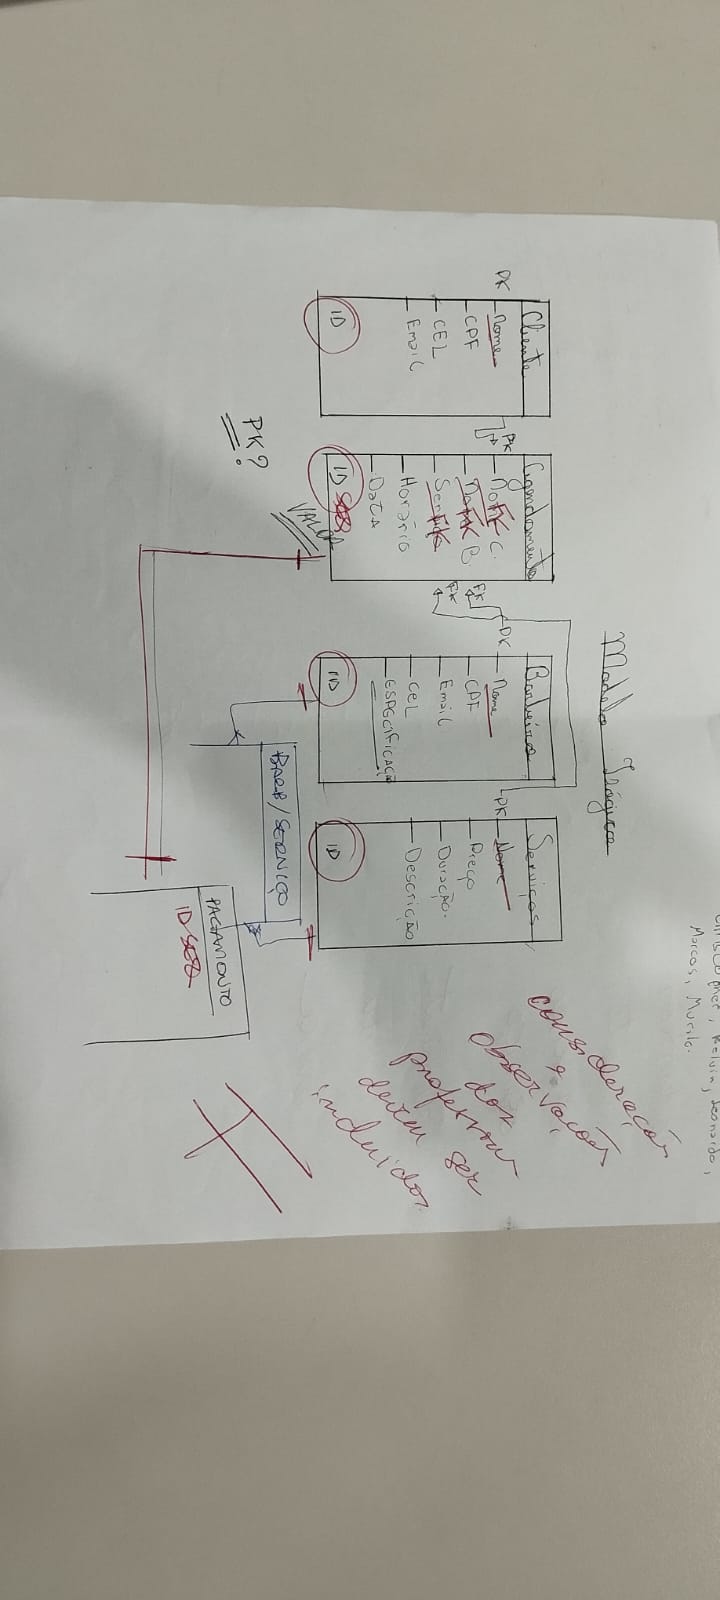 Marcos, Murilo.
Modelo Lógico
Cliente
PK
Nome
CPF
CEL
Email
ID
Agendamento
FK
C.
B.
Horário
Data
ID SEQ
PK?
VALOR
FK
FK
Barbeiro
PK
Nome
CPF
Email
CEL
ESPECIFICAÇÃO
ID
Serviços
PK
Nome
Preço
Duração.
Descrição
ID
BARB/SERVIÇO
PAGAMENTO
ID SEQ
consideração
e
observações
dos
professor
devem ser
incluídos.